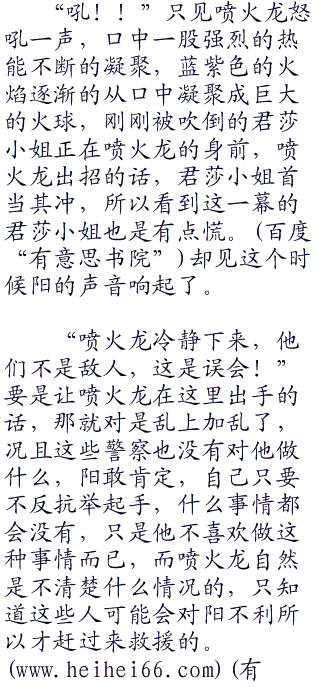 “吼！！”只见喷火龙怒
吼一声，口中一股强烈的热
能不断的凝聚，蓝紫色的火
焰逐渐的从口中凝聚成巨大
的火球，刚刚被吹倒的君莎
小姐正在喷火龙的身前，喷
火龙出招的话，君莎小姐首
当其冲，所以看到这一幕的
君莎小姐也是有点慌。(百度
“有意思书院”)却见这个时
候阳的声音响起了。
“喷火龙冷静下来，他
们不是敌人，这是误会！”
要是让喷火龙在这里出手的
话，那就对是乱上加乱了，
况且这些警察也没有对他做
什么，阳敢肯定，自己只要
不反抗举起手，什么事情都
会没有，只是他不喜欢做这
种事情而已，而喷火龙自然
是不清楚什么情况的，只知
道这些人可能会对阳不利所
以才赶过来救援的。
(www.heihei66.com)(有